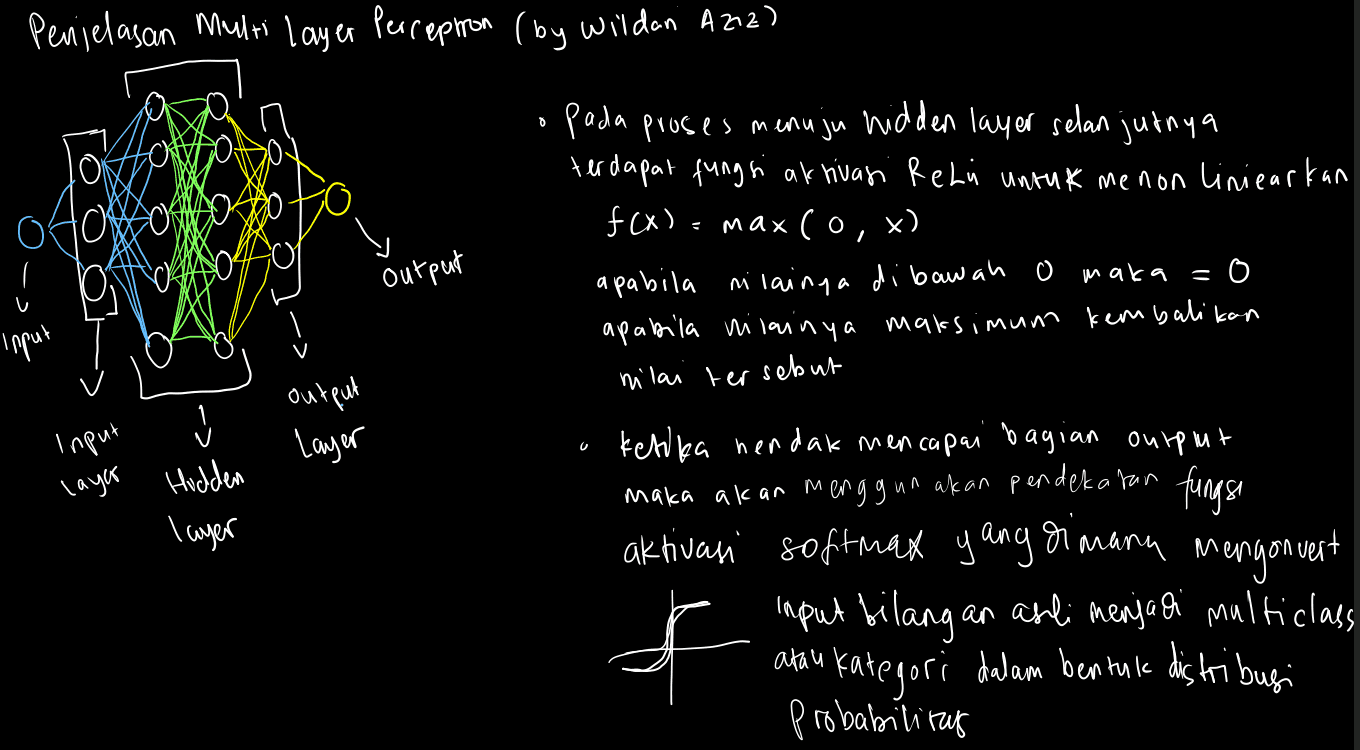 Penjelasan Multi Layer Perceptron (by Wildan Aziz)
Input
Input
Layer
Hidden
layer
Output
Layer
Output
• Pada proses menuju hidden layer selanjutnya
terdapat fungsi aktivasi ReLu untuk menon liniearkan
f(x) = max(0, x)
apabila nilainya dibawah 0 maka = 0
apabila nilainya maksimum kembalikan
nilai tersebut
• ketika hendak mencapai bagian output
maka akan menggunakan pendekatan fungsi
aktivasi softmax yang dimana mengonvert
input bilangan asli menjadi multiclass
atau kategori dalam bentuk distribusi
Probabilitas